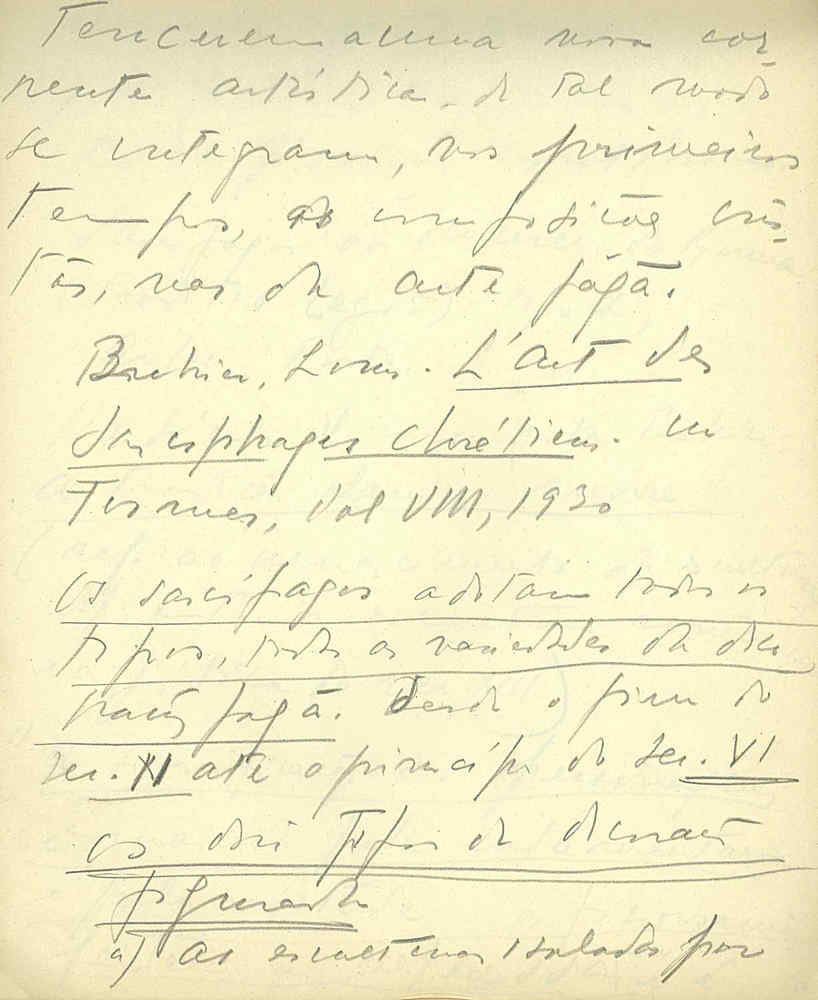 Tencerem a uma nova cor
rente artística, de tal modo
se integram, nos primeiros
tempos, as composições cris-
tãs, nas da arte pagã.
Brehier, Louis. L'art des
sarcophages chrétiens. in
Formes, Vol VIII, 1930
Os sarcófagos adotam todos os
tipos, todas as variedades da deco
ração pagã. Desde o fim do
sec. XI até o princípio do sec. VI
os dois tipos de decoração
figurada
a) as esculturas isoladas por